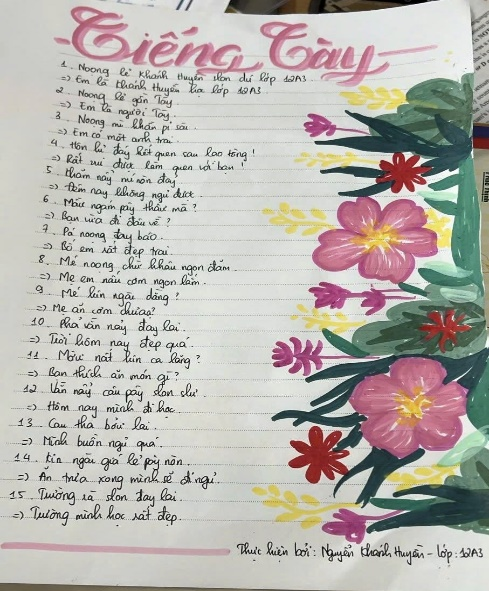 Tiếng Tày
1. Noong lẻ Khánh Huyền slon dú lớp 12A3.
=> Em là Khánh Huyền học lớp 12A3.
2. Noong lẻ gần Tày
=> Em là người Tày.
3. Noong mì khấn pi sài.
=> Em có một anh trai.
4. Hôn hỉ đảy kết quen sau lao tồng!
=> Rất vui được làm quen với bạn!
5. Thâm nảy mí nòn đảy
=> Đêm nay không ngủ được.
6. Mầu ngám pây thâu mà?
=> Bạn vừa đi đâu về?
7. Pá noong đay báo.
=> Bố em rất đẹp trai.
8. Mé noong chử khẩu ngon đắm.
=> Mẹ em nấu cơm ngon lắm.
9. Mé kin ngài dằng?
=> Mẹ ăn cơm chưa?
10. Phạ vằn nảy đay lai.
=> Trời hôm nay đẹp quá.
11. Mầu nắt kin ca lăng?
=> Bạn thích ăn món gì?
12. Vằn nảy câu pây slon slư.
=> Hôm nay mình đi học.
13. Cau tha bới lai.
=> Mình buồn ngủ quá.
14. Kin ngài giá lẻ pây nòn.
=> Ăn trưa xong mình sẽ đi ngủ.
15. Tường rà slon đay lai.
=> Trường mình học rất đẹp.
Thực hiện bởi: Nguyễn Khánh Huyền - lớp: 12A3